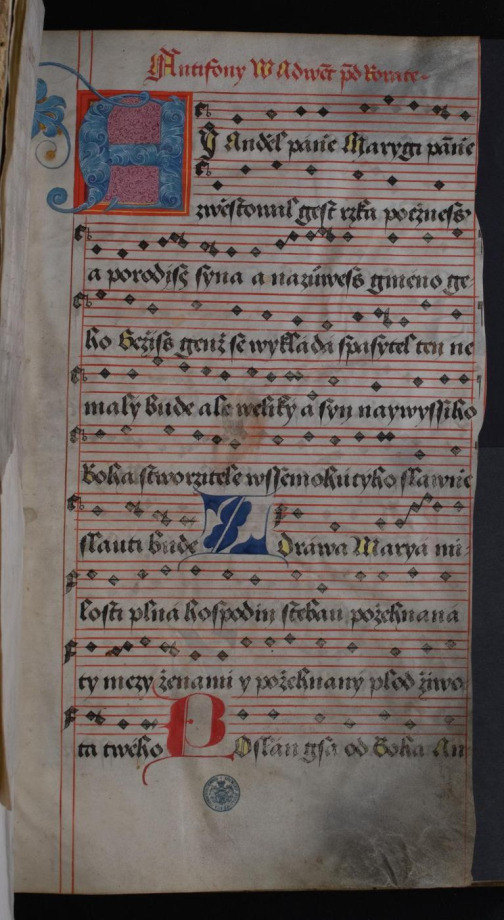 Antifony W Adwēt pd Rorate
A Y Anděl panie Marygi pānie
zwěstowal gest rzka počzness
a porodiss syna a nazúwess gmeno ge-
ho Gežiss genž se wykláda spasytel ten ne
malý bude ale weliký a syn naywyssiho
Boha stworzitele wssemohúcyho slawnie
slauti bude Zdráwa Marya mi-
losti plná hospodin stebau požehnaná
ty mezy ženami y požehnaný plod žiwo-
ta twého Poslán gsa od Boha An